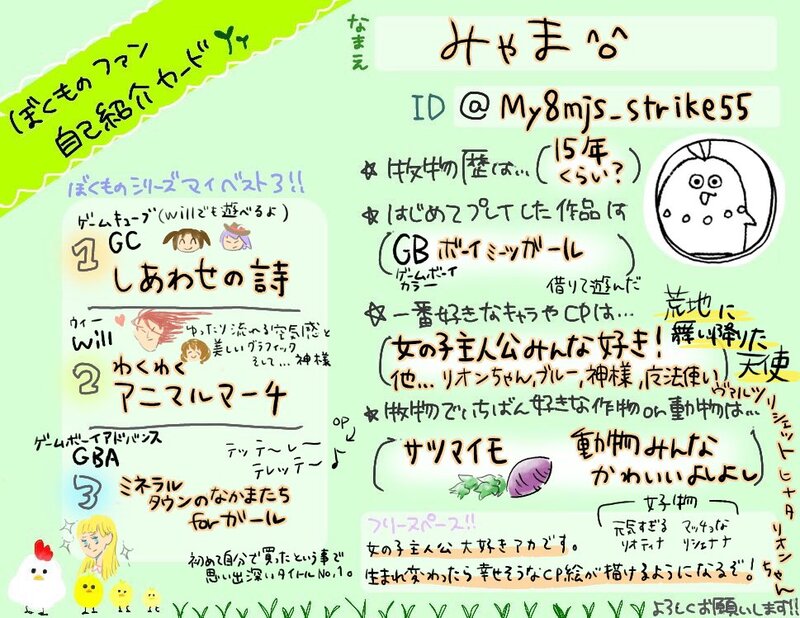 ぼくものファン
自己紹介カード
なまえ
みやま
ID @My8mjs_strike55
ぼくものシリーズマイベスト3!!
ゲームキューブ(Wiiでも遊べるよ)
1 GC
しあわせの詩
ウィー
Wii
ゆったり流れる空気感と
美しいグラフィック
そして…神様
2 わくわく
アニマルマーチ
ゲームボーイアドバンス
GBA
OP
テッテ〜レ〜
テレッテ〜♪
3 ミネラル
タウンのなかまたち
forガール
初めて自分で買ったという事で
思い出深いタイトルNo,1。
☆牧物歴は…(15年
くらい?)
☆はじめてプレイした作品は
(GB ボーイミーツガール)
ゲームボーイ
カラー
借りて遊んだ
☆一番好きなキャラやCPは…
(女の子主人公みんな好き!
他…リオンちゃん,ブルー,神様,魔法使い)
荒地に
舞い降りた
天使
ヴァルツ
リシェット
ヒナタ
リオンちゃん
☆牧物でいちばん好きな作物or動物は…
(サツマイモ 動物みんな
かわいいよしよし)
女子物
元気すぎる
リオティナ
マッチョな
リシェナナ
フリースペース!!
女の子主人公大好きアカです。
生まれ変わったら幸せそうなCP絵が描けるようになるぞ!
よろしくお願いします!!